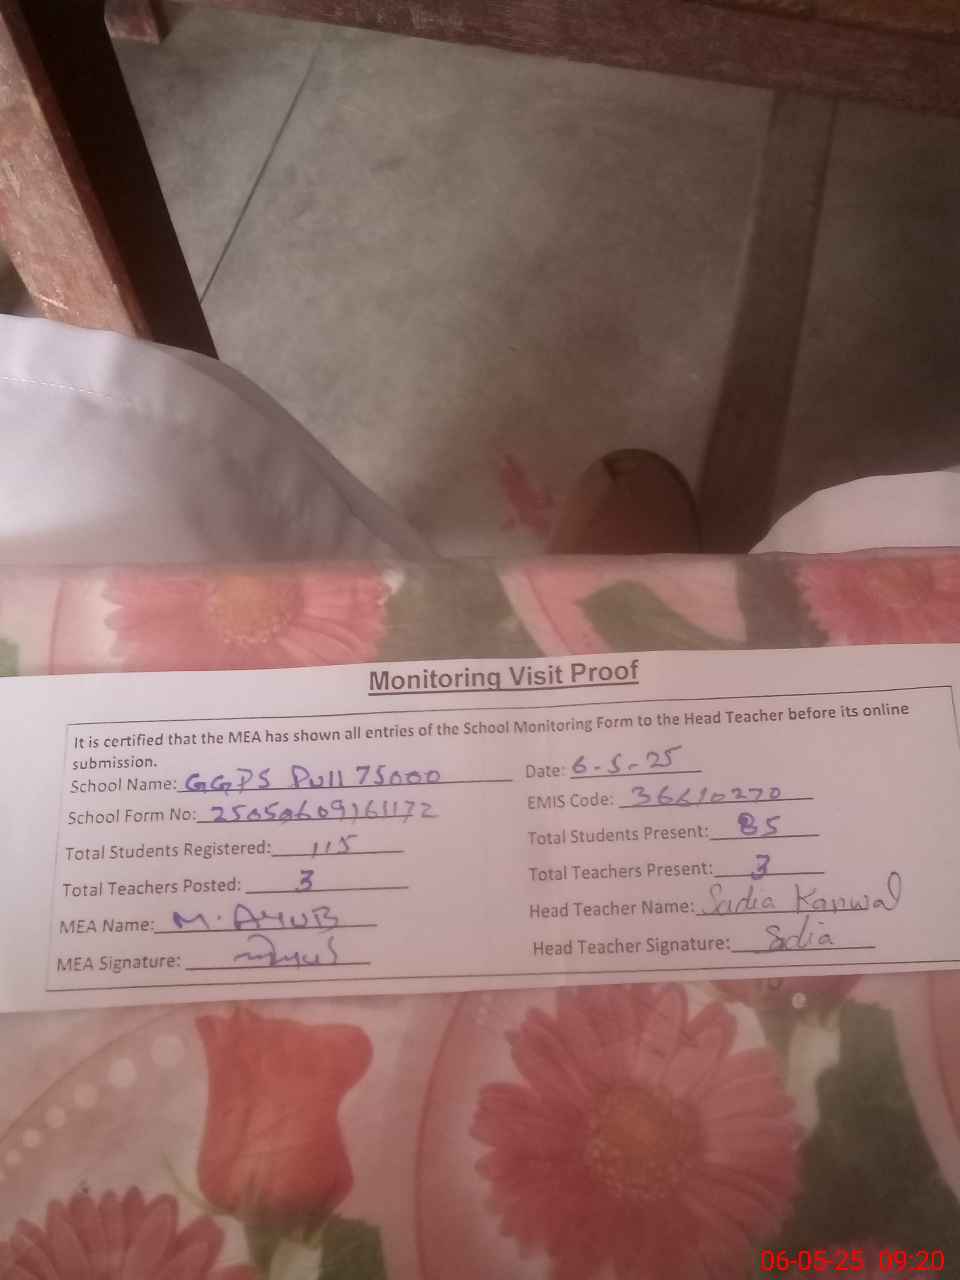 Monitoring Visit Proof
It is certified that the MEA has shown all entries of the School Monitoring Form to the Head Teacher before its online
submission.
School Name: GGPS Pull 75000 Date: 6-5-25
School Form No: 25050609161172 EMIS Code: 36610270
Total Students Registered: 115 Total Students Present: 85
Total Teachers Posted: 3 Total Teachers Present: 3
MEA Name: M. AYUB Head Teacher Name: Sadia Kanwal
MEA Signature: Head Teacher Signature: Sadia
06-05-25 09:20